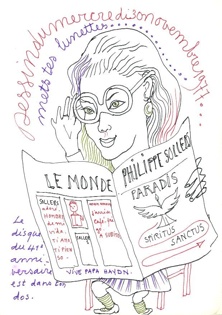 dessin du mercredi 30 novembre 1977....
mets tes lunettes........
LE MONDE
SOLLERS
PHILIPPE SOLLERS
PARADIS
SPIRITUS
SANCTUS
VIVE PAPA HAYDN.
Le
disque
du 41e
anni
versaire
est dans ton
dos.